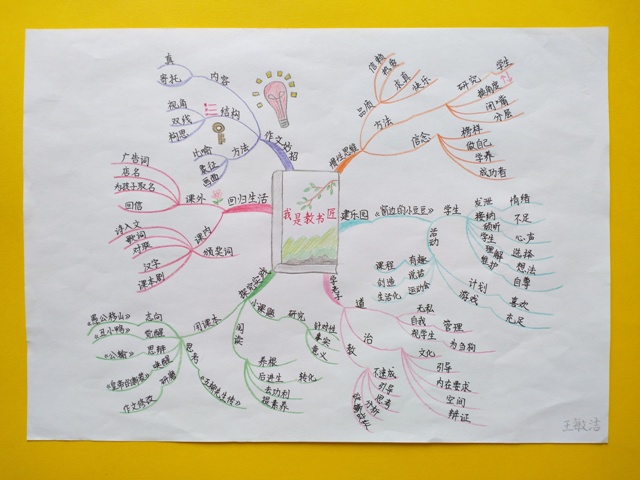 我是教书匠
作文妙招
内容
真
寄托
结构
视角
双线
构思
方法
比喻
象征
画面
回归生活
课外
广告词
店名
为孩子取名
回信
课内
诗人文
歌词
对联
汉字
课本剧
颁奖词
慢性思维
方法
品质
信赖
热爱
求真
快乐
研究
学生
换角度
闭嘴
分层
信念
榜样
做自己
学养
成功者
建乐园
《窗边的小豆豆》
学生
发泄
情绪
接纳
不足
倾听
学生
心声
理解
选择
维护
想法
自尊
活动
有趣
课程
说话
创造
运动会
生活化
计划
游戏
喜欢
充足
道
无私
自我
管理
我学生
为当狗
治
文化
引导
内在要求
空间
辩证
教
不速成
引导
思考
分析
小课题
研究
针对性
真实
意义
阅读
养根
后进生
转化
去功利
提素养
闲课本
《愚公移山》
志向
《丑小鸭》
觉醒
思考
《公输》
思辨
唤醒
《皇帝的新装》
研磨
作文修改
王敏洁